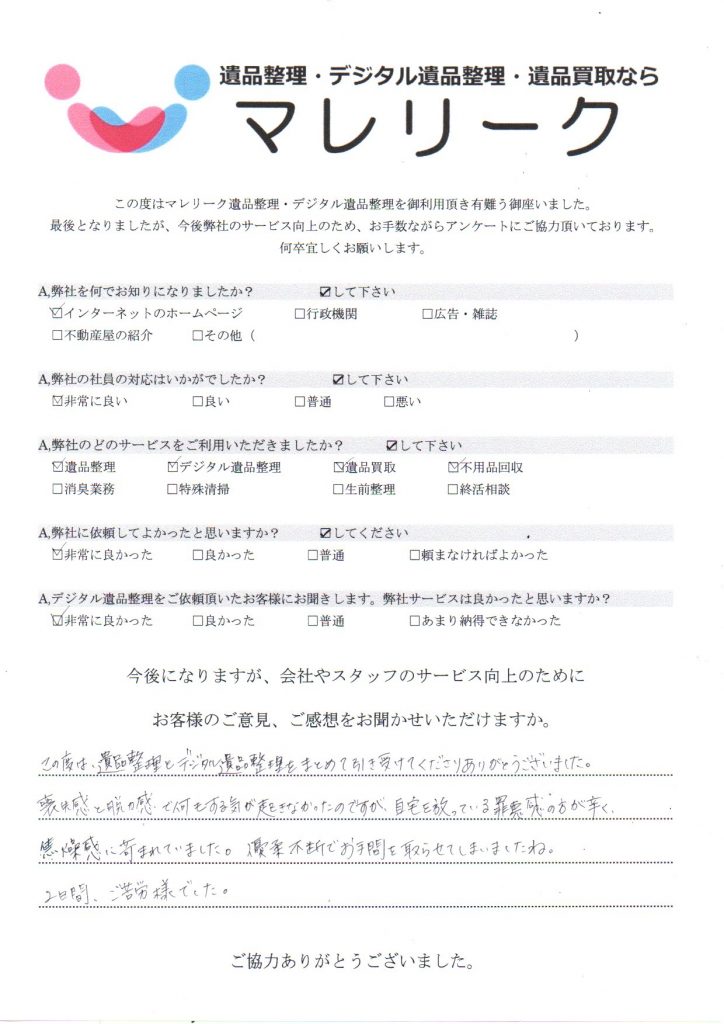 遺品整理・デジタル遺品整理・遺品買取なら
マレリーク
この度はマレリーク遺品整理・デジタル遺品整理を御利用頂き有難う御座いました。
最後となりましたが、今後弊社のサービス向上のため、お手数ながらアンケートにご協力頂いております。
何卒宜しくお願いします。
A,弊社を何でお知りになりましたか？ ☑して下さい
☑インターネットのホームページ □行政機関 □広告・雑誌
□不動産屋の紹介 □その他（ ）
A,弊社の社員の対応はいかがでしたか？ ☑して下さい
☑非常に良い □良い □普通 □悪い
A,弊社のどのサービスをご利用いただきましたか？ ☑して下さい
☑遺品整理 ☑デジタル遺品整理 ☑遺品買取 ☑不用品回収
□消臭業務 □特殊清掃 □生前整理 □終活相談
A,弊社に依頼してよかったと思いますか？ ☑してください
☑非常に良かった □良かった □普通 □頼まなければよかった
A,デジタル遺品整理をご依頼頂いたお客様にお聞きします。弊社サービスは良かったと思いますか？
☑非常に良かった □良かった □普通 □あまり納得できなかった
今後になりますが、会社やスタッフのサービス向上のために
お客様のご意見、ご感想をお聞かせいただけますか。
この度は、遺品整理とデジタル遺品整理をまとめて引き受けてくださりありがとうございました。
喪失感と脱力感で何もする気が起きなかったのですが、自宅を放っている罪悪感の方が辛く、
焦燥感に苛まれていました。優柔不断でお手間を取らせてしまいましたね。
2日間、ご苦労様でした。
ご協力ありがとうございました。